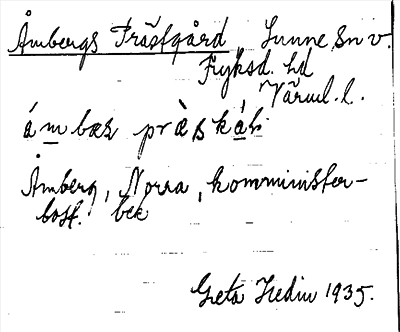 Åmbergs Prästgård, Sunne sn v.
Fryksd. hd
Värml. l.
ámbæs præskál:
Åmberg, Norra, komminister-
bost. bek
Greta Hedin 1935.